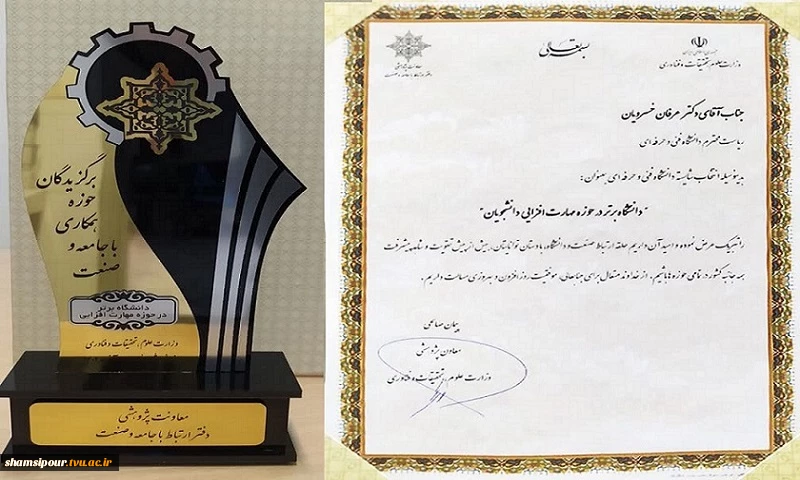 برگزیدگان
حوزه
همکاری
با جامعه و
صنعت
دانشگاه برتر
در حوزه مهارت افزایی
وزارت علوم، تحقیقات و فناوری
معاونت پژوهشی
دفتر ارتباط با جامعه و صنعت
shamsipour.tvu.ac.ir
بسمه تعالی
جمهوری اسلامی ایران
وزارت علوم، تحقیقات و فناوری
معاونت پژوهشی
دفتر ارتباط با جامعه و صنعت
جناب آقای دکتر عرفان خسرویان
ریاست محترم دانشگاه فنی و حرفه ای
بدینوسیله انتخاب شایسته دانشگاه فنی و حرفه ای بعنوان :
"دانشگاه برتر در حوزه مهارت افزایی دانشجویان"
را تبریک عرض نموده و امید آن داریم حلقه ارتباط صنعت و دانشگاه، با دستان توانایتان، بیش از پیش تقویت و شاهد پیشرفت
همه جانبه کشور در تمامی حوزه ها باشیم . از خداوند متعال برای جنابعالی، موفقیت روز افزون و بهروزی مسالت داریم .
پیمان صالحی
معاون پژوهشی
وزارت علوم، تحقیقات و فناوری